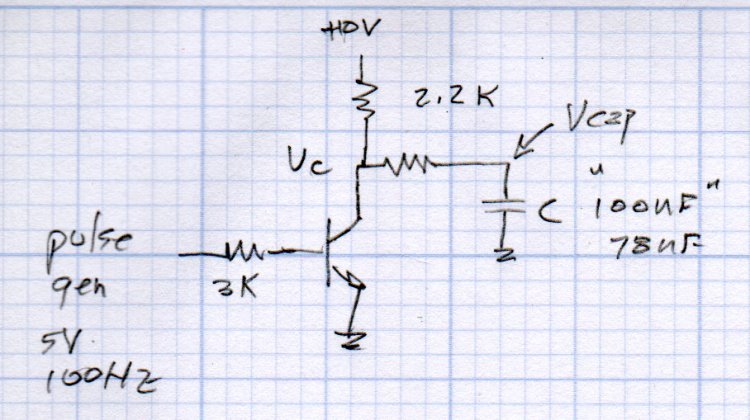 +10V
2.2K
Vcap
Vc
C
"100nF"
78nF
pulse
gen
3K
5V
100Hz